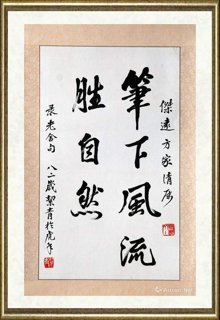 傑遠方家清屬
筆下風流
胜自然
录老舍句 八二歲絜青於虎年